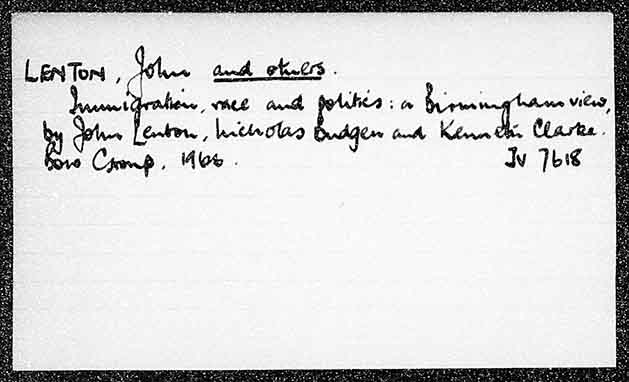 LENTON, John and others.
Immigration, race and politics: a Birmingham view,
by John Lenton, Nicholas Budgen and Kenneth Clarke.
Bow Group, 1966.
JV 7618